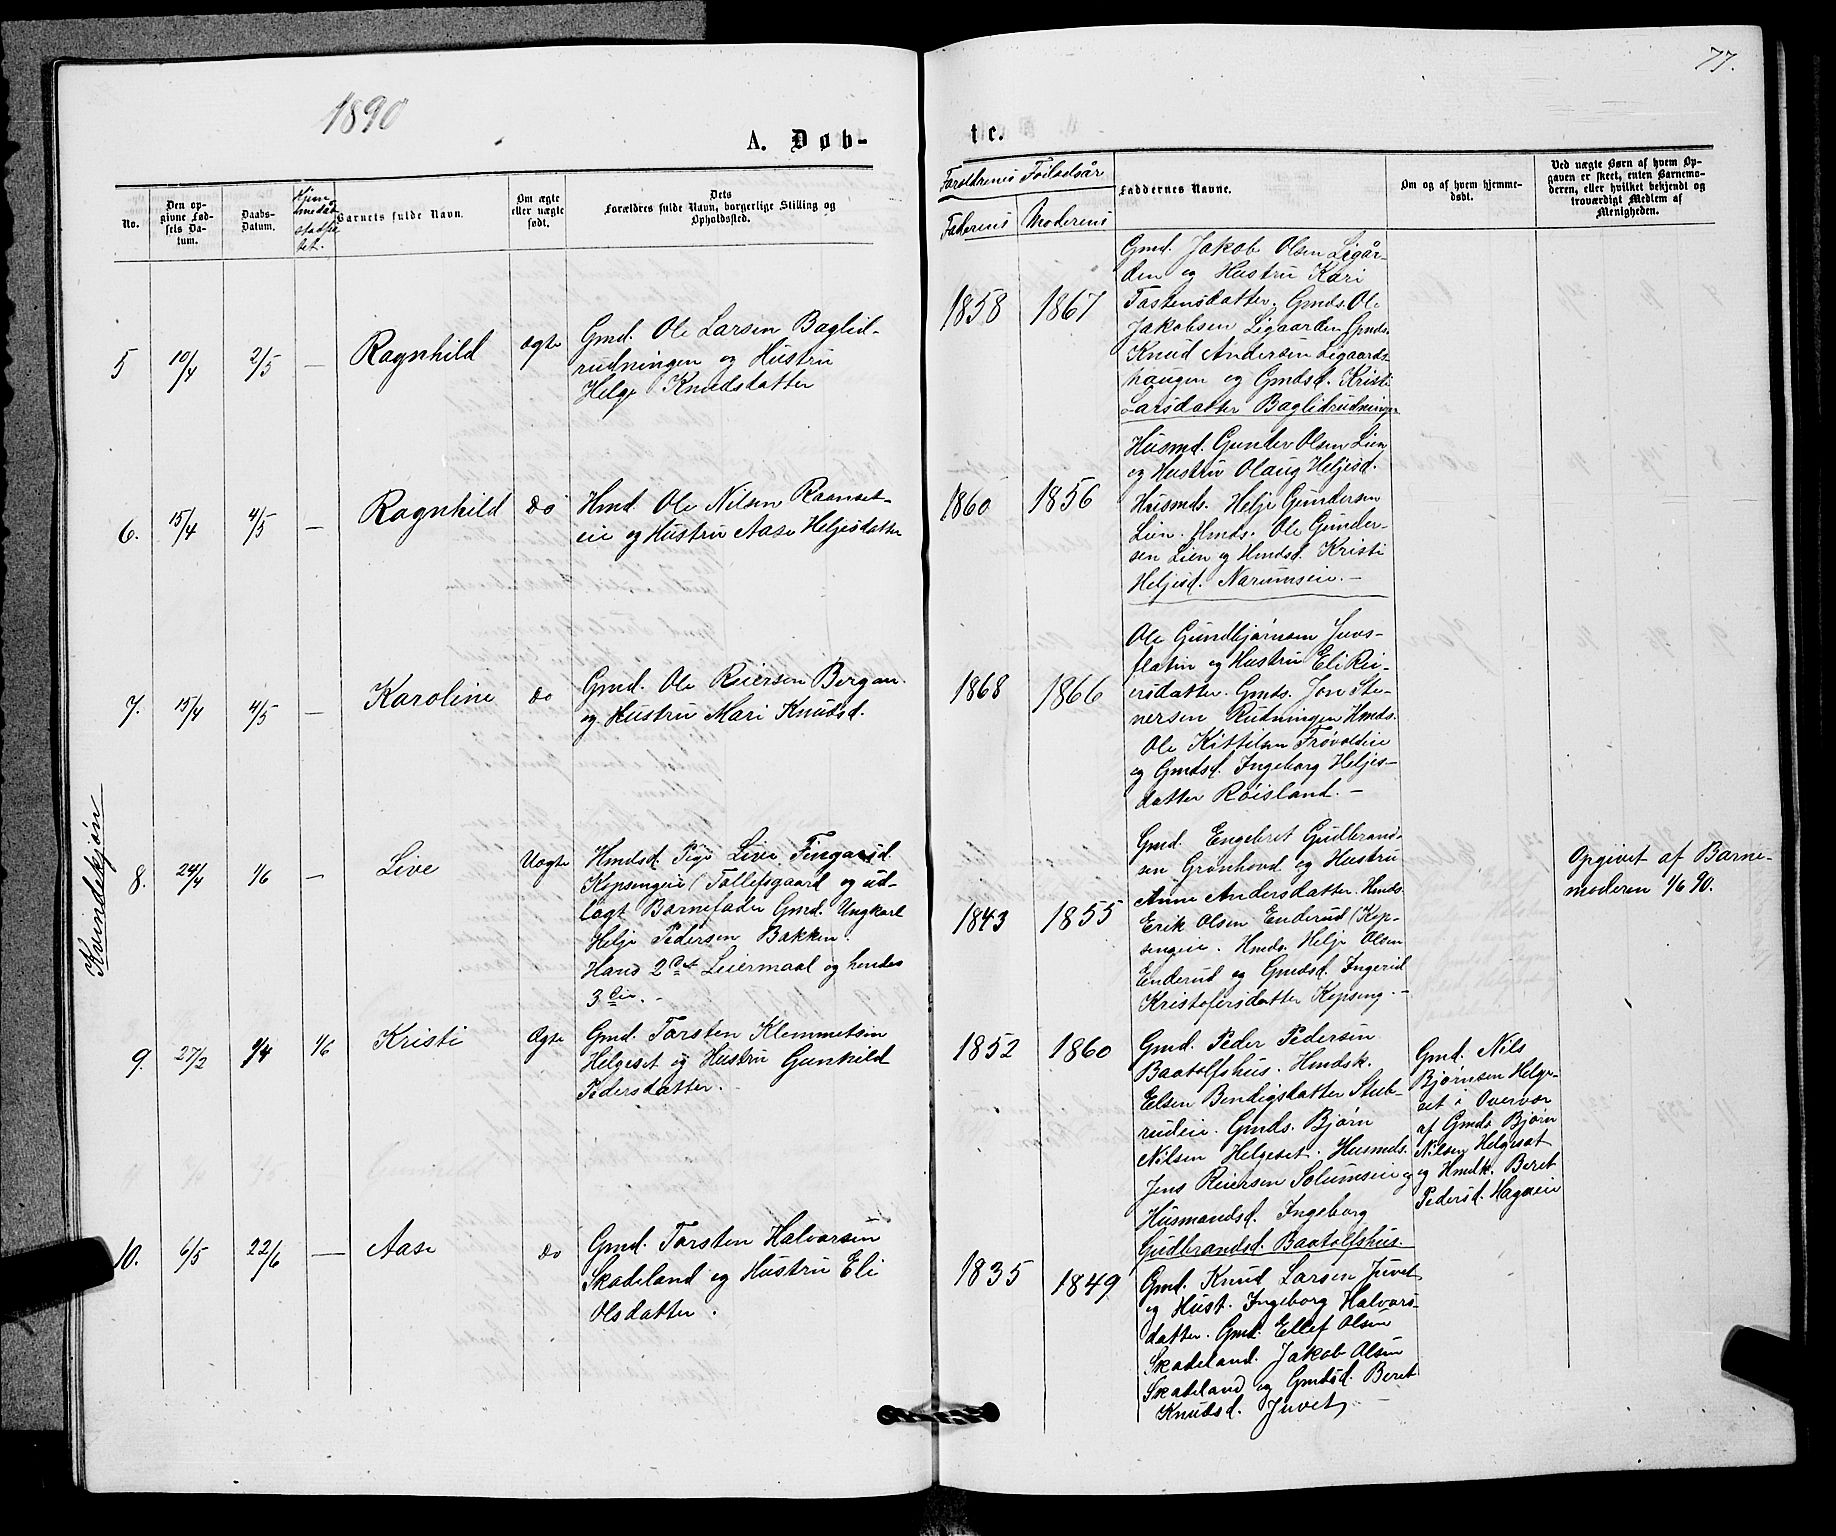 77.
1890
A. Døb-
te.
No.
Den op-
givne Fød-
sels Da-
tum.
Daabs-
Datum.
Hjem-
medåb
stadfæ
tet.
Barnets fulde Navn.
Om ægte
eller uægte
født.
Dets
Forældres fulde Navn, borgerlige Stilling og
Opholdssted.
Forældrenes Fødselsår
Faderens
Moderens
Faddernes Navne.
Om og af hvem hjemme-
døbt.
Ved uægte Børn af hvem Op-
gaven er skeet, enten Barnemo-
deren, eller hvilket bekjendt og
troværdigt Medlem af
Menigheden.
Kvindekjøn
5 10/4 2/5 — Ragnhild ægte
Gmd. Ole Larsen Baglid-
rudningen og Hustru
Helge Knudsdatter
1858 1867
Gmd. Jakob Olsen Ligår-
den og Hustru Kari
Tostensdatter. Gmds. Ole
Jakobsen Ligaarden, Gmds.
Knud Andersen Ligaards-
haugen og Gmdsd. Kristi
Larsdatter Baglidrudningen
6. 15/4 4/5 — Ragnhild do
Hmd. Ole Nilsen Raanset-
eie og Hustru Aase Heljesdatter
1860 1856
Husmd. Gunder Olsen Lien
og Hustru Olaug Heljesd.
Husmds. Helje Gundersen
Lien. Hmds. Ole Gunder-
sen Lien og Hmdsd. Kristi
Heljesd. Narumseie. —
7. 15/4 4/5 — Karoline do
Gmd. Ole Reiersen Bergan.
og Hustru Mari Knudsd.
1868 1866
Ole Gundbjørnsen Juvs-
flatin og Hustru Eli Rei-
ersdatter. Gmds. Jon Ste-
nersen Rudningen Hmds.
Ole Kittilsen Frøvoldeie
og Gmdsd. Ingeborg Heljes-
datter Røisland. —
8. 24/4 1/6 — Live Uægte
Hmdsd. Pige Live Fingarsd.
Kopsengeie (Tollefsgaard og ud-
lagt Barnefader Gmd. Ungkarl
Helje Pedersen Bakken.
Hans 2det Leiermaal og hendes
3die. —
1843 1855
Gmd. Engebret Gudbrand-
sen Grønhovd og Hustru
Anne Andersdatter. Hmds.
Erik Olsen Enderud (Kop-
sengeie. Hmds. Helje Olsen
Enderud og Gmdsd. Ingerid
Kristofersdatter Kopseng. —
Opgivet af Barne-
moderen 1/6 90.
9. 27/2 7/4 1/6 Kristi Ægte
Gmd. Torsten Klemmetsen
Helgeset og Hustru Gunhild
Pedersdatter.
1852 1860
Gmd. Peder Pedersen
Baatolfshus. Hmdsk.
Elsen Bendigsdatter Stub-
rudeie. Gmds. Bjørn
Nilsen Helgeset. Husmds.
Jens Reiersen Solumseie og
Husmandsd. Ingeborg
Gudbrandsd. Baatolfshus.
Gmd. Nils
Bjørnsen Helge-
set i Overvær
af Gmds Bjørn
Nilsen Helgeset
og Hmdk. Beret
Pedersd. Hagaeie
10. 6/5 22/6 — Aase do
Gmd. Torsten Halvorsen
Skadeland og Hustru Eli
Olsdatter.
1835 1849
Gmd. Knud Larsen Juvet
og Hust. Ingeborg Halvors-
datter. Gmd. Ellef Olsen
Skadeland. Jakob Olsen
Skadeland og Gmdsd. Beret
Knudsd. Juvet. —